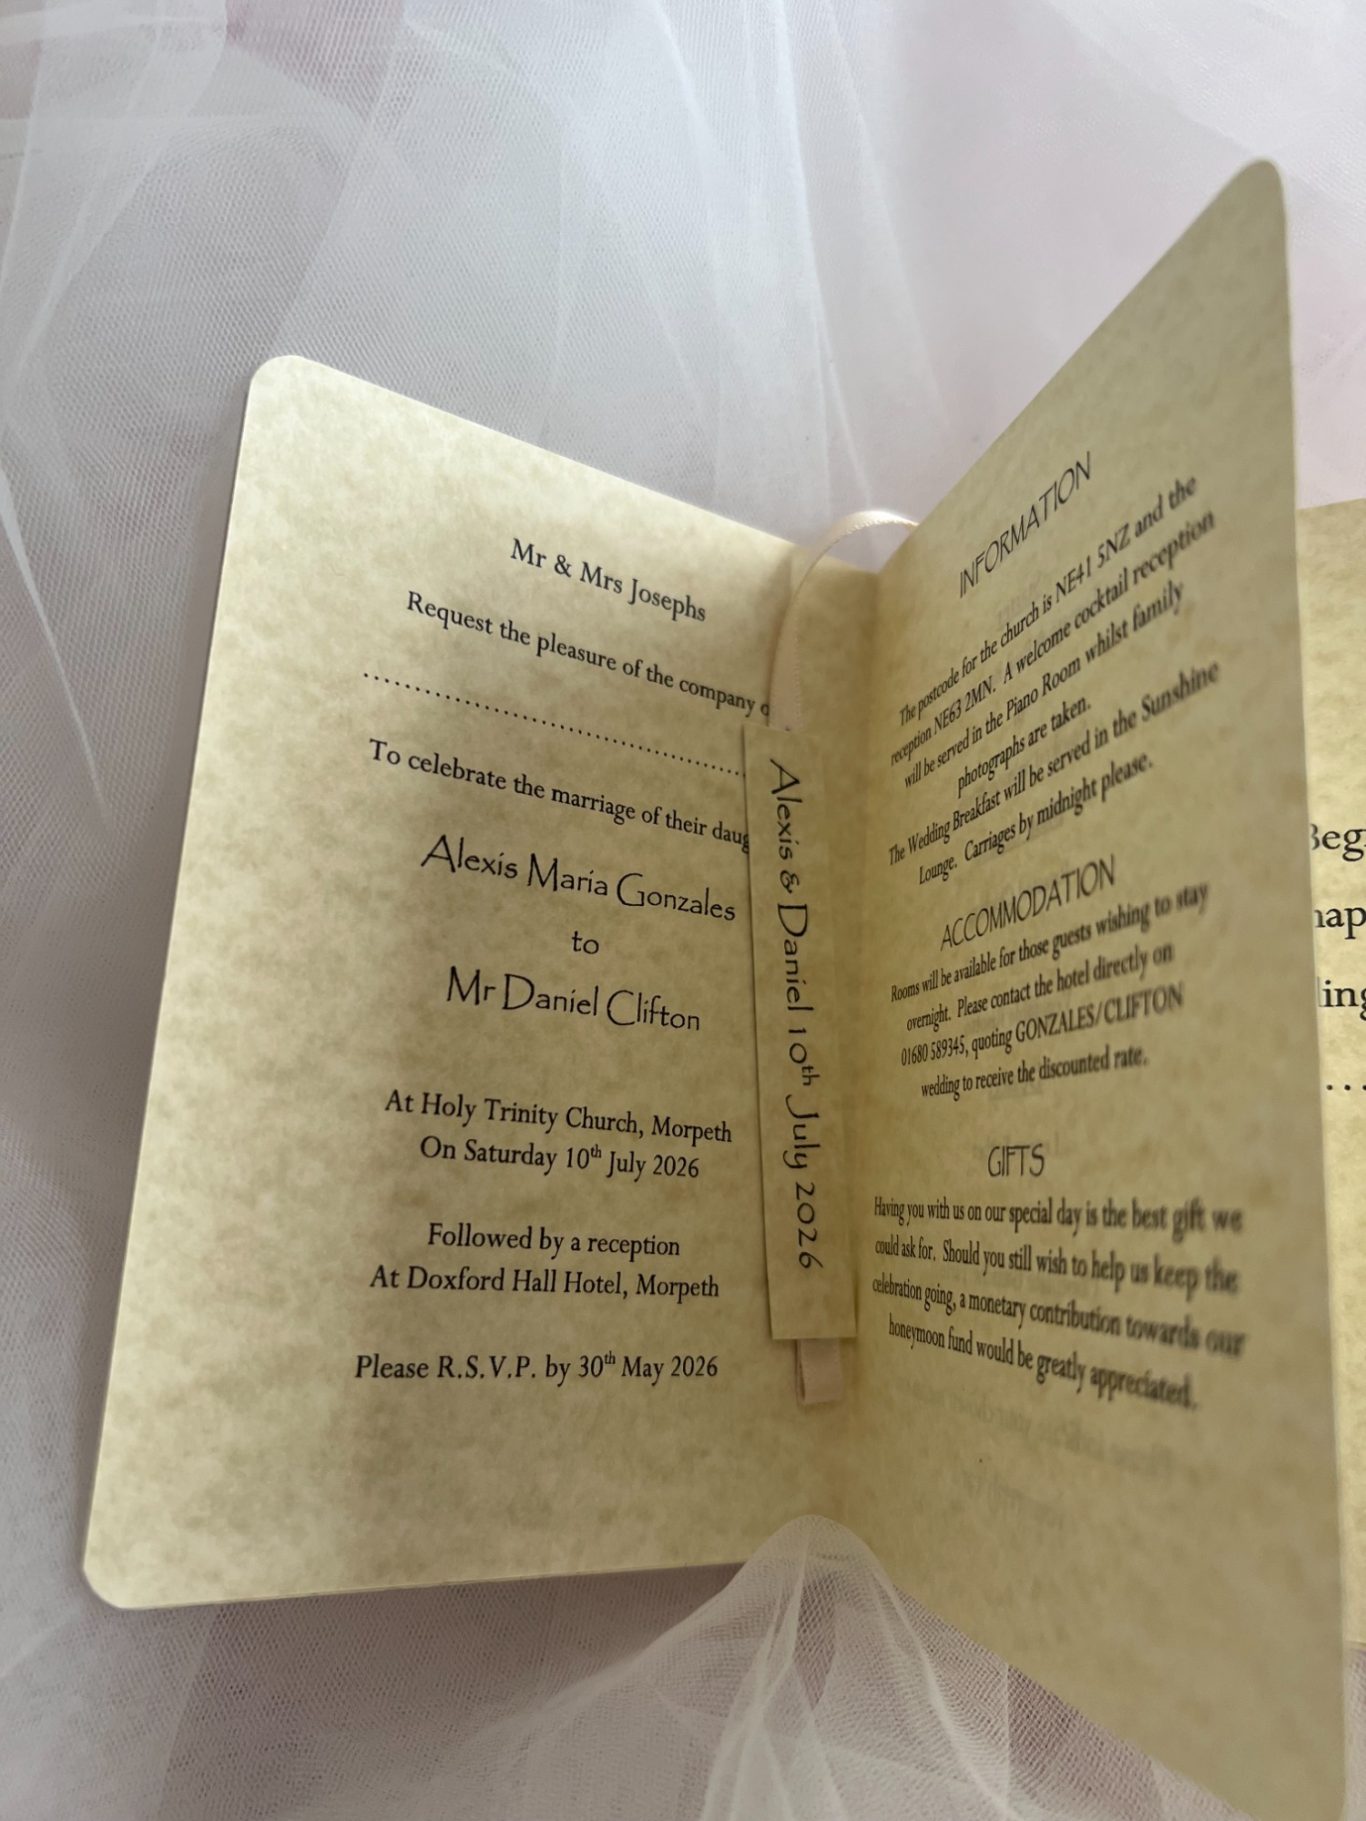 Mr & Mrs Josephs
Request the pleasure of the company
........................................
To celebrate the marriage of their
Alexis Maria Gonzales
to
Mr Daniel Clifton
At Holy Trinity Church, Morpeth
On Saturday 10th July 2026
Followed by a reception
At Doxford Hall Hotel, Morpeth
Please R.S.V.P. by 30th May 2026
Alexis & Daniel 10th July 2026
INFORMATION
The postcode for the church is NE41 5NZ and the
reception NE63 2MN. A welcome cocktail reception
will be served in the Piano Room whilst family
photographs are taken.
The Wedding Breakfast will be served in the Sunshine
Lounge. Carriages by midnight please.
ACCOMMODATION
Rooms will be available for those guests wishing to stay
overnight. Please contact the hotel directly on
01680 589345, quoting GONZALES/CLIFTON
wedding to receive the discounted rate.
GIFTS
Having you with us on our special day is the best gift we
could ask for. Should you still wish to help us keep the
celebration going, a monetary contribution towards our
honeymoon fund would be greatly appreciated.